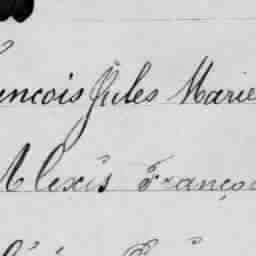 ncois Jules Marie
Alexis Franço